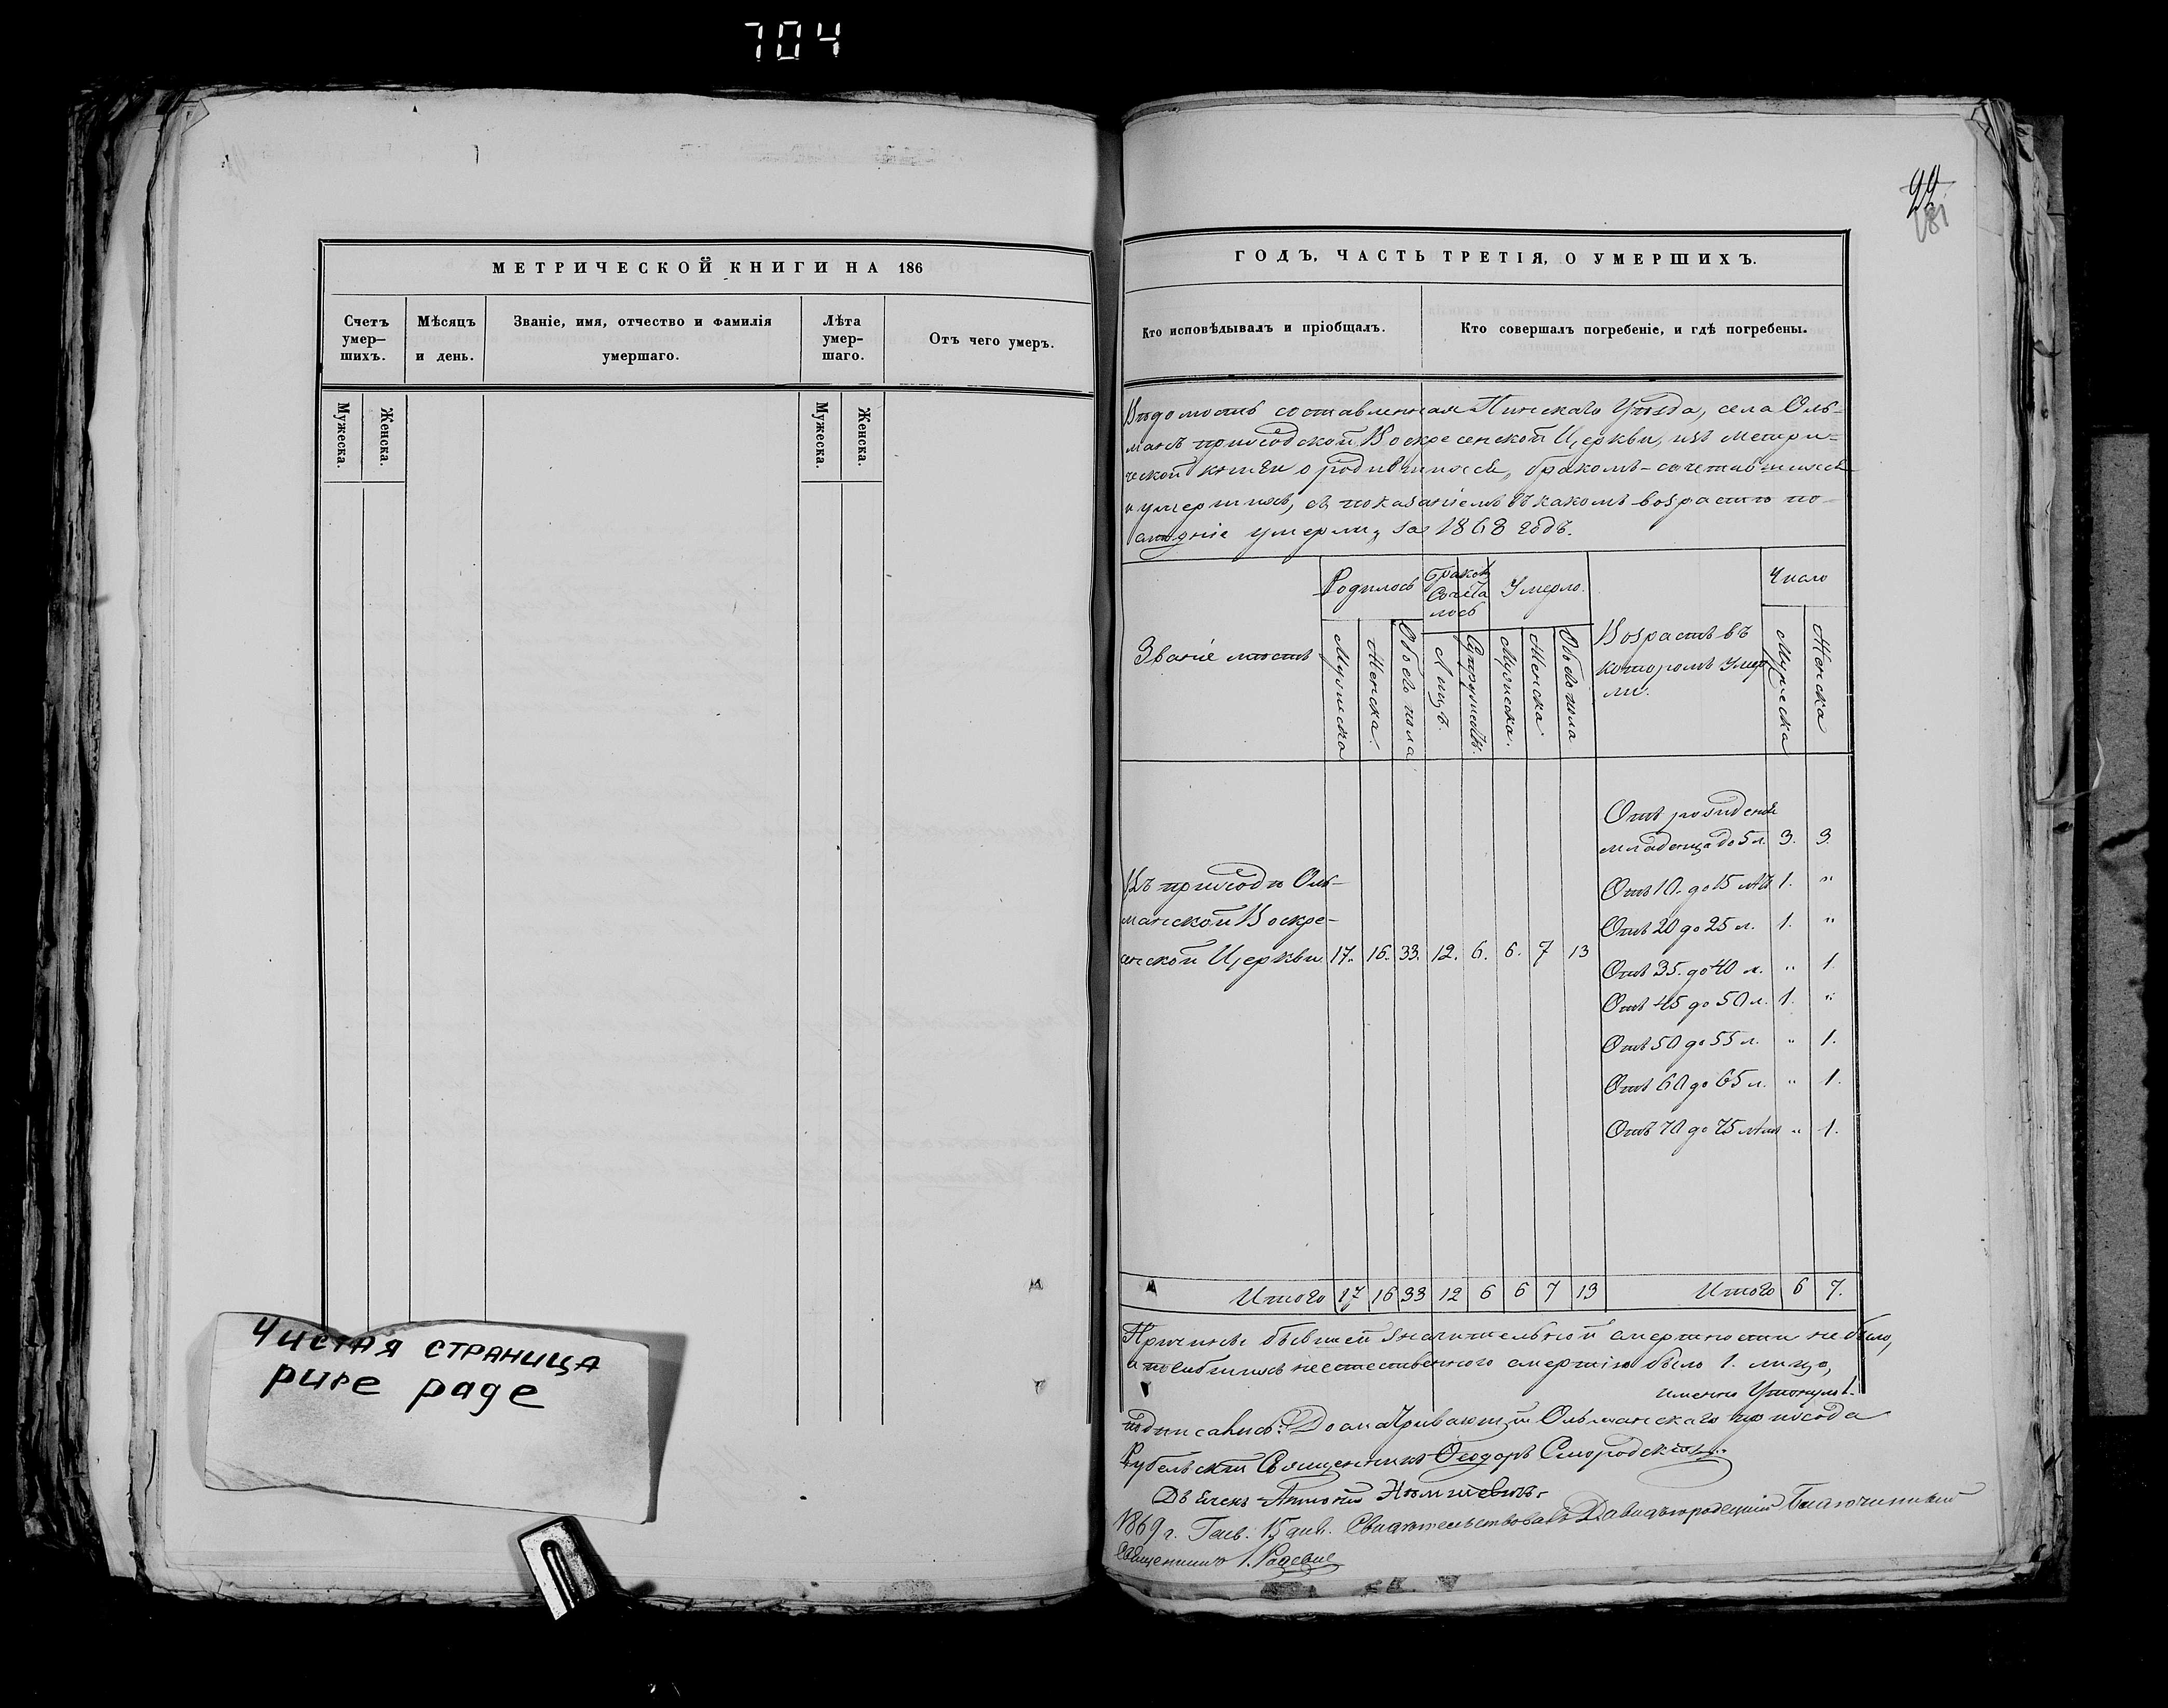 704
МЕТРИЧЕСКОЙ КНИГИ НА 186
Счетъ умер-шихъ.
Мѣсяцъ и день.
Званіе, имя, отчество и фамилія умершаго.
Лѣта умер-шаго.
Отъ чего умеръ.
Мужеска.
Женска.
Мужеска.
Женска.
Чистая страница
pure page
99
181
ГОДЪ, ЧАСТЬ ТРЕТІЯ, О УМЕРШИХЪ.
Кто исповѣдывалъ и пріобщалъ.
Кто совершалъ погребеніе, и гдѣ погребены.
Вѣдомость составленная Пинскаго Уѣзда, села Оль-
манъ приходской Воскресенской Церкви, изъ метри-
ческой книги о родившихся, бракомъ-сочетавшихся
и умершихъ, съ показаніемъ въ какомъ возрастѣ по-
слѣдніе умерли, за 1868 годъ.
Званіе мѣстъ
Родилось
Бракомъ Сочета лось
Умерло.
Возрастъ въ
которомъ Умер
ли.
Число
Мужеска
Женска.
Обоего пола
Лицъ.
Супружествъ.
Мужеска.
Женска
Обоего пола
Мужеска
Женска
Отъ рожденія
младенца до 5 л. 3. 3.
Отъ 10. до 15 лѣтъ 1. "
Отъ 20 до 25 л. 1. "
Отъ 35. до 40 л. " 1.
Отъ 45 до 50 л. 1. "
Отъ 50 до 55 л. " 1.
Отъ 60 до 65 л. " 1.
Отъ 70 до 75 лѣтъ " 1.
Въ приходѣ Оль-
манской Воскре-
сенской Церкви 17. 16. 33. 12. 6. 6. 7 13
Итого 17 16 33 12 6 6 7 13 Итого 6 7.
Причины бывшей значительной смертности не было,
а погибшихъ неестественною смертію было 1. лицо,
именно Утонуло 1.
подписались: Досматривающій Ольманскаго прихода
Рубельскій Священникъ Ѳеодоръ Смородскій
Дьячекъ Антоній
1869 г. Генв. 15 дня. Свидѣтельствовалъ Давидъгородецкій Благочинный
Священникъ І.